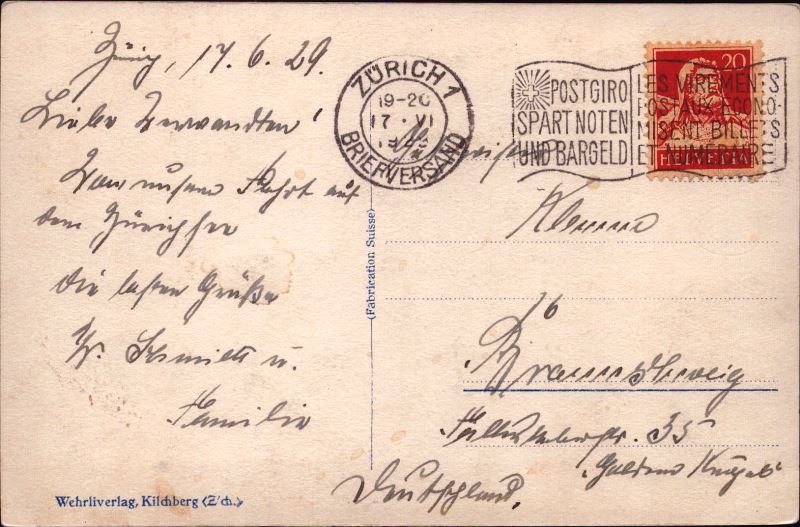 Zürich, 17.6.29.
Liebe Verwandten!
Von unserer Fahrt auf
dem Zürichsee
die besten Grüße
W. Schmidt u.
Familie
Wehrliverlag, Kilchberg (Zch.)
(Fabrication Suisse)
ZÜRICH 1
19-20
17. VI
BRIEFVERSAND
POSTGIRO
SPART NOTEN
UND BARGELD
LES VIREMENTS
POSTAUX ECONO-
MISENT BILLETS
ET NUMERAIRE
20
HELVETIA
Braunschweig
35
"Goldene Kugel"
Deutschland.